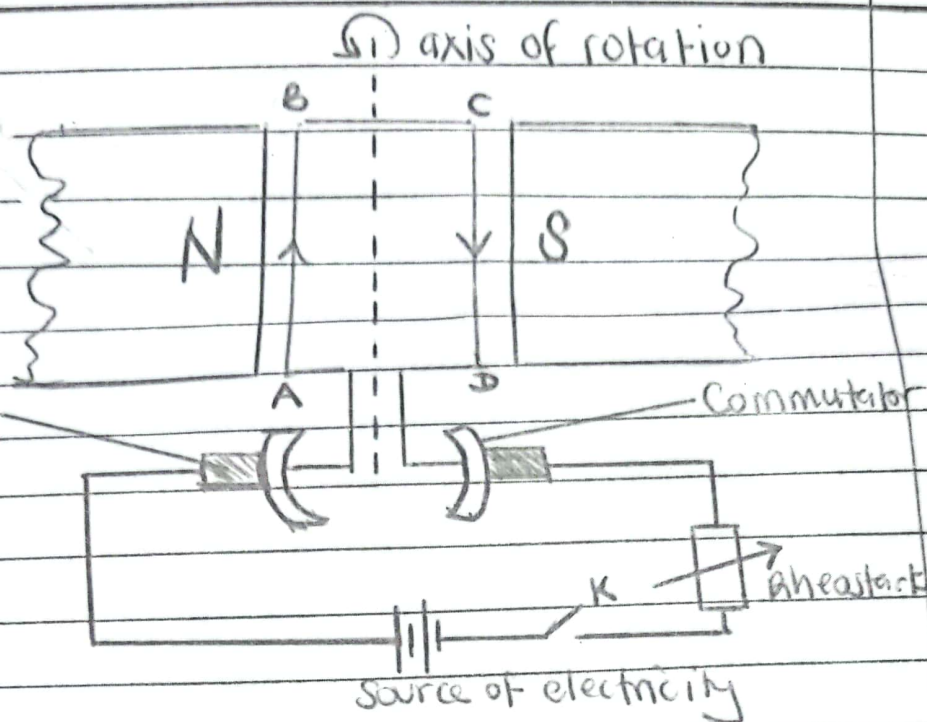 axis of rotation
B C
N S
A D
Commutator
K
Rheastack
source of electricity